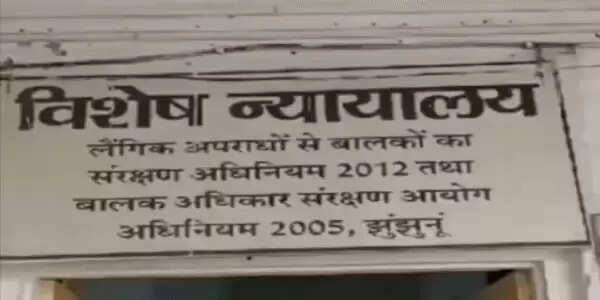 विशेष न्यायालय
लैंगिक अपराधों से बालकों का
संरक्षण अधिनियम 2012 तथा
बालक अधिकार संरक्षण आयोग
अधिनियम 2005, झुंझुनूं